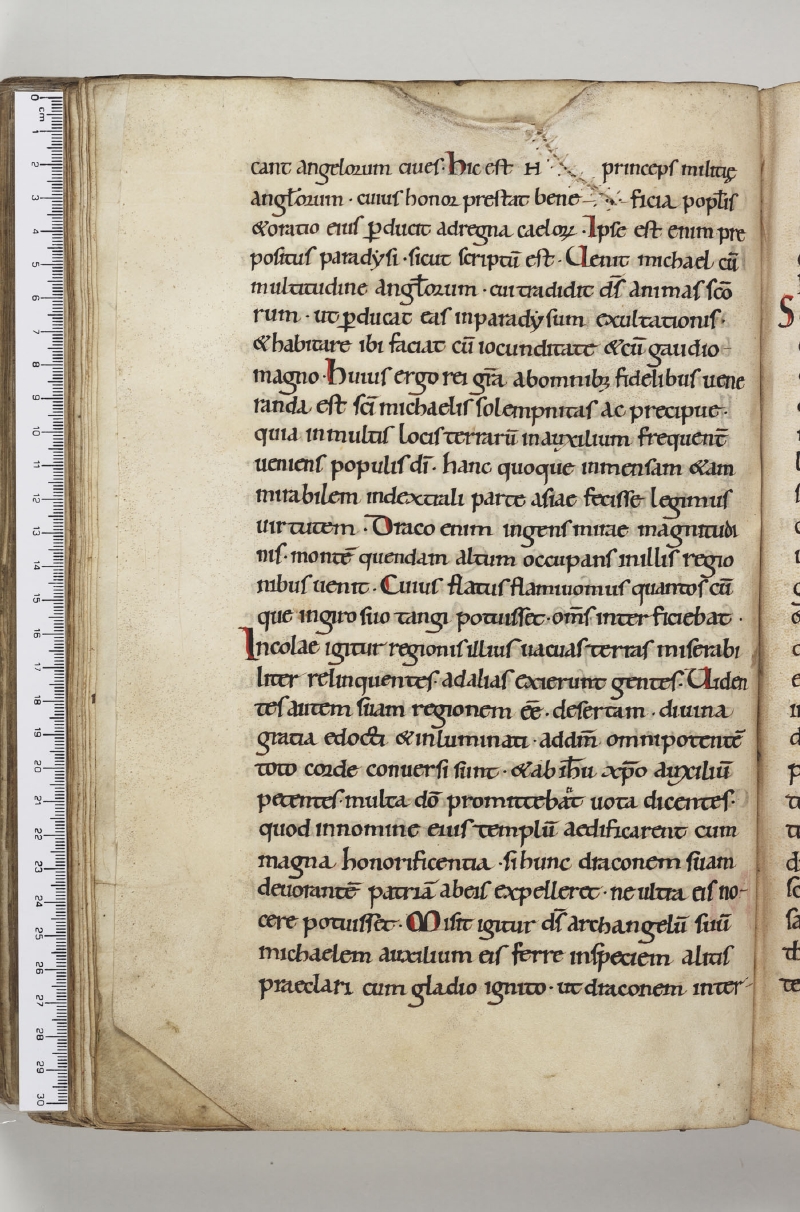 cant angelorum ciues. hic est H princeps militię
angl̄orum · cuius honor prestat bene ficia popl̄is
& oratio eius ꝑducit ad regna caeloꝝ · Ipse est enim pre
positus paradysi · sicut scriptū est · Uenit michael cū
multitudine angl̄orum · cui tradidit d̄s animas scō
rum · ut ꝑducat eas in paradysum exultationis ·
& habitare ibi faciat cū iocunditate & cū gaudio
magno · huius ergo rei gr̄a ab omnibꝫ fidelibus uene
randa est sc̄i michaelis solempnitas ac precipue ·
quia in multis locis terrarū in auxilium frequent̄
ueniens populis dī · hanc quoque inmensam &am
mirabilem in dextrali parte asiae fecisse legimus
uirtutem · Draco enim ingens mirae magnitudi
nis · montē quendam altum occupans in illis regio
nibus uenit · Cuius flatus flammiuomus quantoscū
que in giro suo tangi potuisset · om̄s interficiebat ·
Incolae igitur regionis illius uacuas terras miserabi
liter relinquentes · ad alias exierunt gentes · Uiden
tes autem suam regionem eē · desertam · diuina
gratia edocti & inluminati · ad dm̄ omnipotentē
toto corde conuersi sunt · & ab ih̄u xp̄o auxiliū
petentes · multa dō promittebāt uota dicentes ·
quod in nomine eius templū aedificarent cum
magna honorificentia · si hunc draconem suam
deuorantē patriā ab eis expelleret · ne ultra eis no-
cere potuisset · Misit igitur d̄s archangelū suū
michaelem auxilium eis ferre in speciem alitis
praeclari cum gladio ignito · ut draconem inter-
S